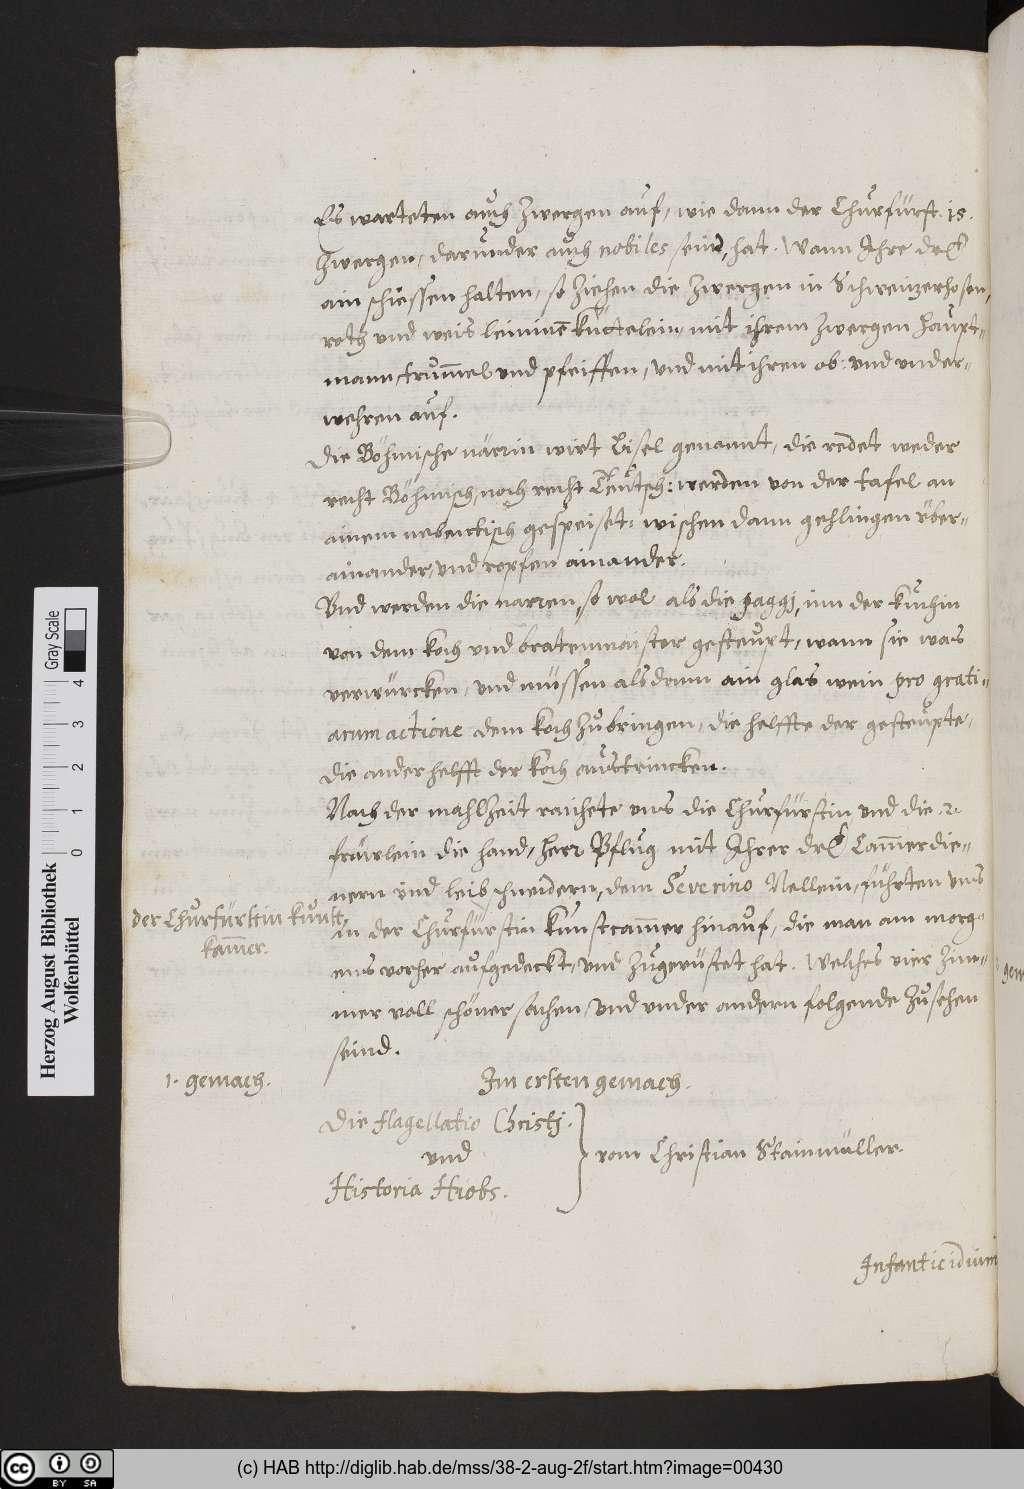 Es warteten auch Zwergen auf, wie dann der Churfürst. 15.
Zwergen, darunder auch nobiles seind, hat. Wann Ihre drlt
ain schiessen halten, so ziehen die Zwergen in Schweizerhosen,
roth und weis leinine kuttelein, mit ihrem Zwergen haupt=
mann, trummel und pfeiffen, und mit ihren ob: und under=
wehren auf.
Die Böhmische närrin wirt Lisel genannt, die redet weder
recht Böhmisch, noch recht Teutsch: werden von der tafel an
ainem nebentisch gespeiset: wischen dann gehlingen über=
ainander, und ropfen ainander.
Und werden die narren, so wol als die paggj, inn der kuchin
von dem koch und bratenmaister gesteupt, wann sie was
verwürcken, und müssen alsdann ain glas wein pro grati=
arum actione dem koch zubringen, die helffte der gesteupte,
die ander helfft der koch austrincken.
Nach der mahlzeit raichete uns die Churfürstin und die .2.
fräwlein die hand, herr Pflug mit Ihrer drlt Cammerdie=
nern und leibschneidern, dem Severino Nellein, führten uns
in der Churfürstin kunstcammer hinauf, die man am morg=
ens vorher aufgedeckt, und zugerüstet hat. Welches vier Zim=
mer voll schöner sachen, und under andern folgende zusehen
seind.
der Churfürstin kunst,
kammer.
1. gemach.
Im ersten gemach.
Die flagellatio Christj.
und
Historia Hiobs.
vom Christian Stainmüller.
Infanticidium
Herzog August Bibliothek
Wolfenbüttel
Gray Scale
0 1 2 3 4
cc BY SA
(c) HAB http://diglib.hab.de/mss/38-2-aug-2f/start.htm?image=00430